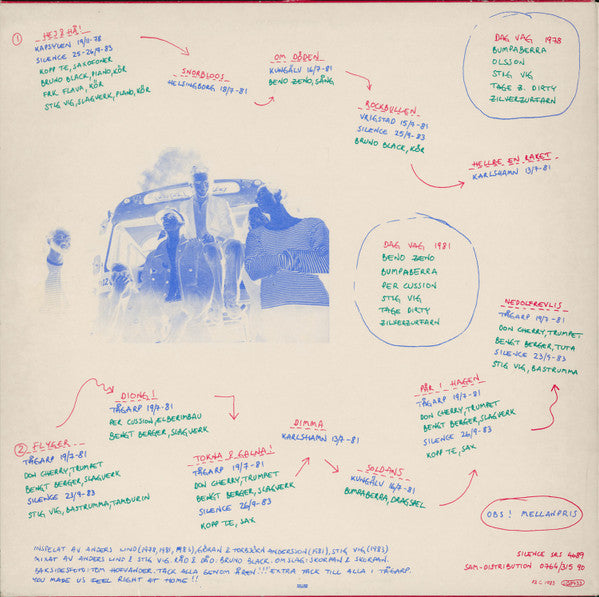 ① HEJ & HÅ!
KAPSYLEN 19/7-78
SILENCE 25-26/9-83
KOPP TE, SAXOFONER
BRUNO BLACK, PIANO, KÖR
FRK. FLAVA, KÖR
STIG VIG, SLAGVERK, PIANO, KÖR
SNORBLOOS
HELSINGBORG 18/7-81
OM DÖDEN
KUNGÄLV 16/7-81
BENO ZENO, SÅNG
ROCKBULLEN
VRIGSTAD 15/7-81
SILENCE 25/9-83
BRUNO BLACK, KÖR
HELLRE EN RAKET
KARLSHAMN 13/7-81
DAG VAG 1978
BUMPABERRA
OLSSON
STIG VIG
TAGE Z. DIRTY
ZILVERZURFARN
DAG VAG 1981
BENO ZENO
BUMPABERRA
PER CUSSION
STIG VIG
TAGE DIRTY
ZILVERZURFARN
② FLYGER
TÅGARP 19/7-81
DON CHERRY, TRUMPET
BENGT BERGER, SLAGVERK
SILENCE 23/9-83
STIG VIG, BASTRUMMA, TAMBURIN
DIONG!
TÅGARP 19/7-81
PER CUSSION, ELBERIMBAU
BENGT BERGER, SLAGVERK
TOKNA & GALNA!
TÅGARP 19/7-81
DON CHERRY, TRUMPET
BENGT BERGER, SLAGVERK
SILENCE 26/9-83
KOPP TE, SAX
DIMMA
KARLSHAMN 13/7-81
SOLDANS
KUNGÄLV 16/7-81
BUMPABERRA, DRAGSPEL
PÅR I HAGEN
TÅGARP 19/7-81
DON CHERRY, TRUMPET
BENGT BERGER, SLAGVERK
SILENCE 26/9-83
KOPP TE, SAX
NEDOLFREVLIS
TÅGARP 19/7-81
DON CHERRY, TRUMPET
BENGT BERGER, TUTA
SILENCE 23/9-83
STIG VIG, BASTRUMMA
OBS! MELLANPRIS
INSPELAT AV ANDERS LIND (1978, 1981, 1983), GÖRAN & TORBJÖRN ANDERSSON (1981), STIG VIG (1983)
MIXAT AV ANDERS LIND & STIG VIG. RÅD & DÅD: BRUNO BLACK. OMSLAG: SKORPAN & SKORPAN.
BAKSIDESFOTO: TOM HOFVANDER. TACK ALLA GENOM ÅREN!!! EXTRA TACK TILL ALLA I TÅGARP.
YOU MADE US FEEL RIGHT AT HOME!!
SILENCE SRS 4689
SAM-DISTRIBUTION 0764/315 90
P & C 1983